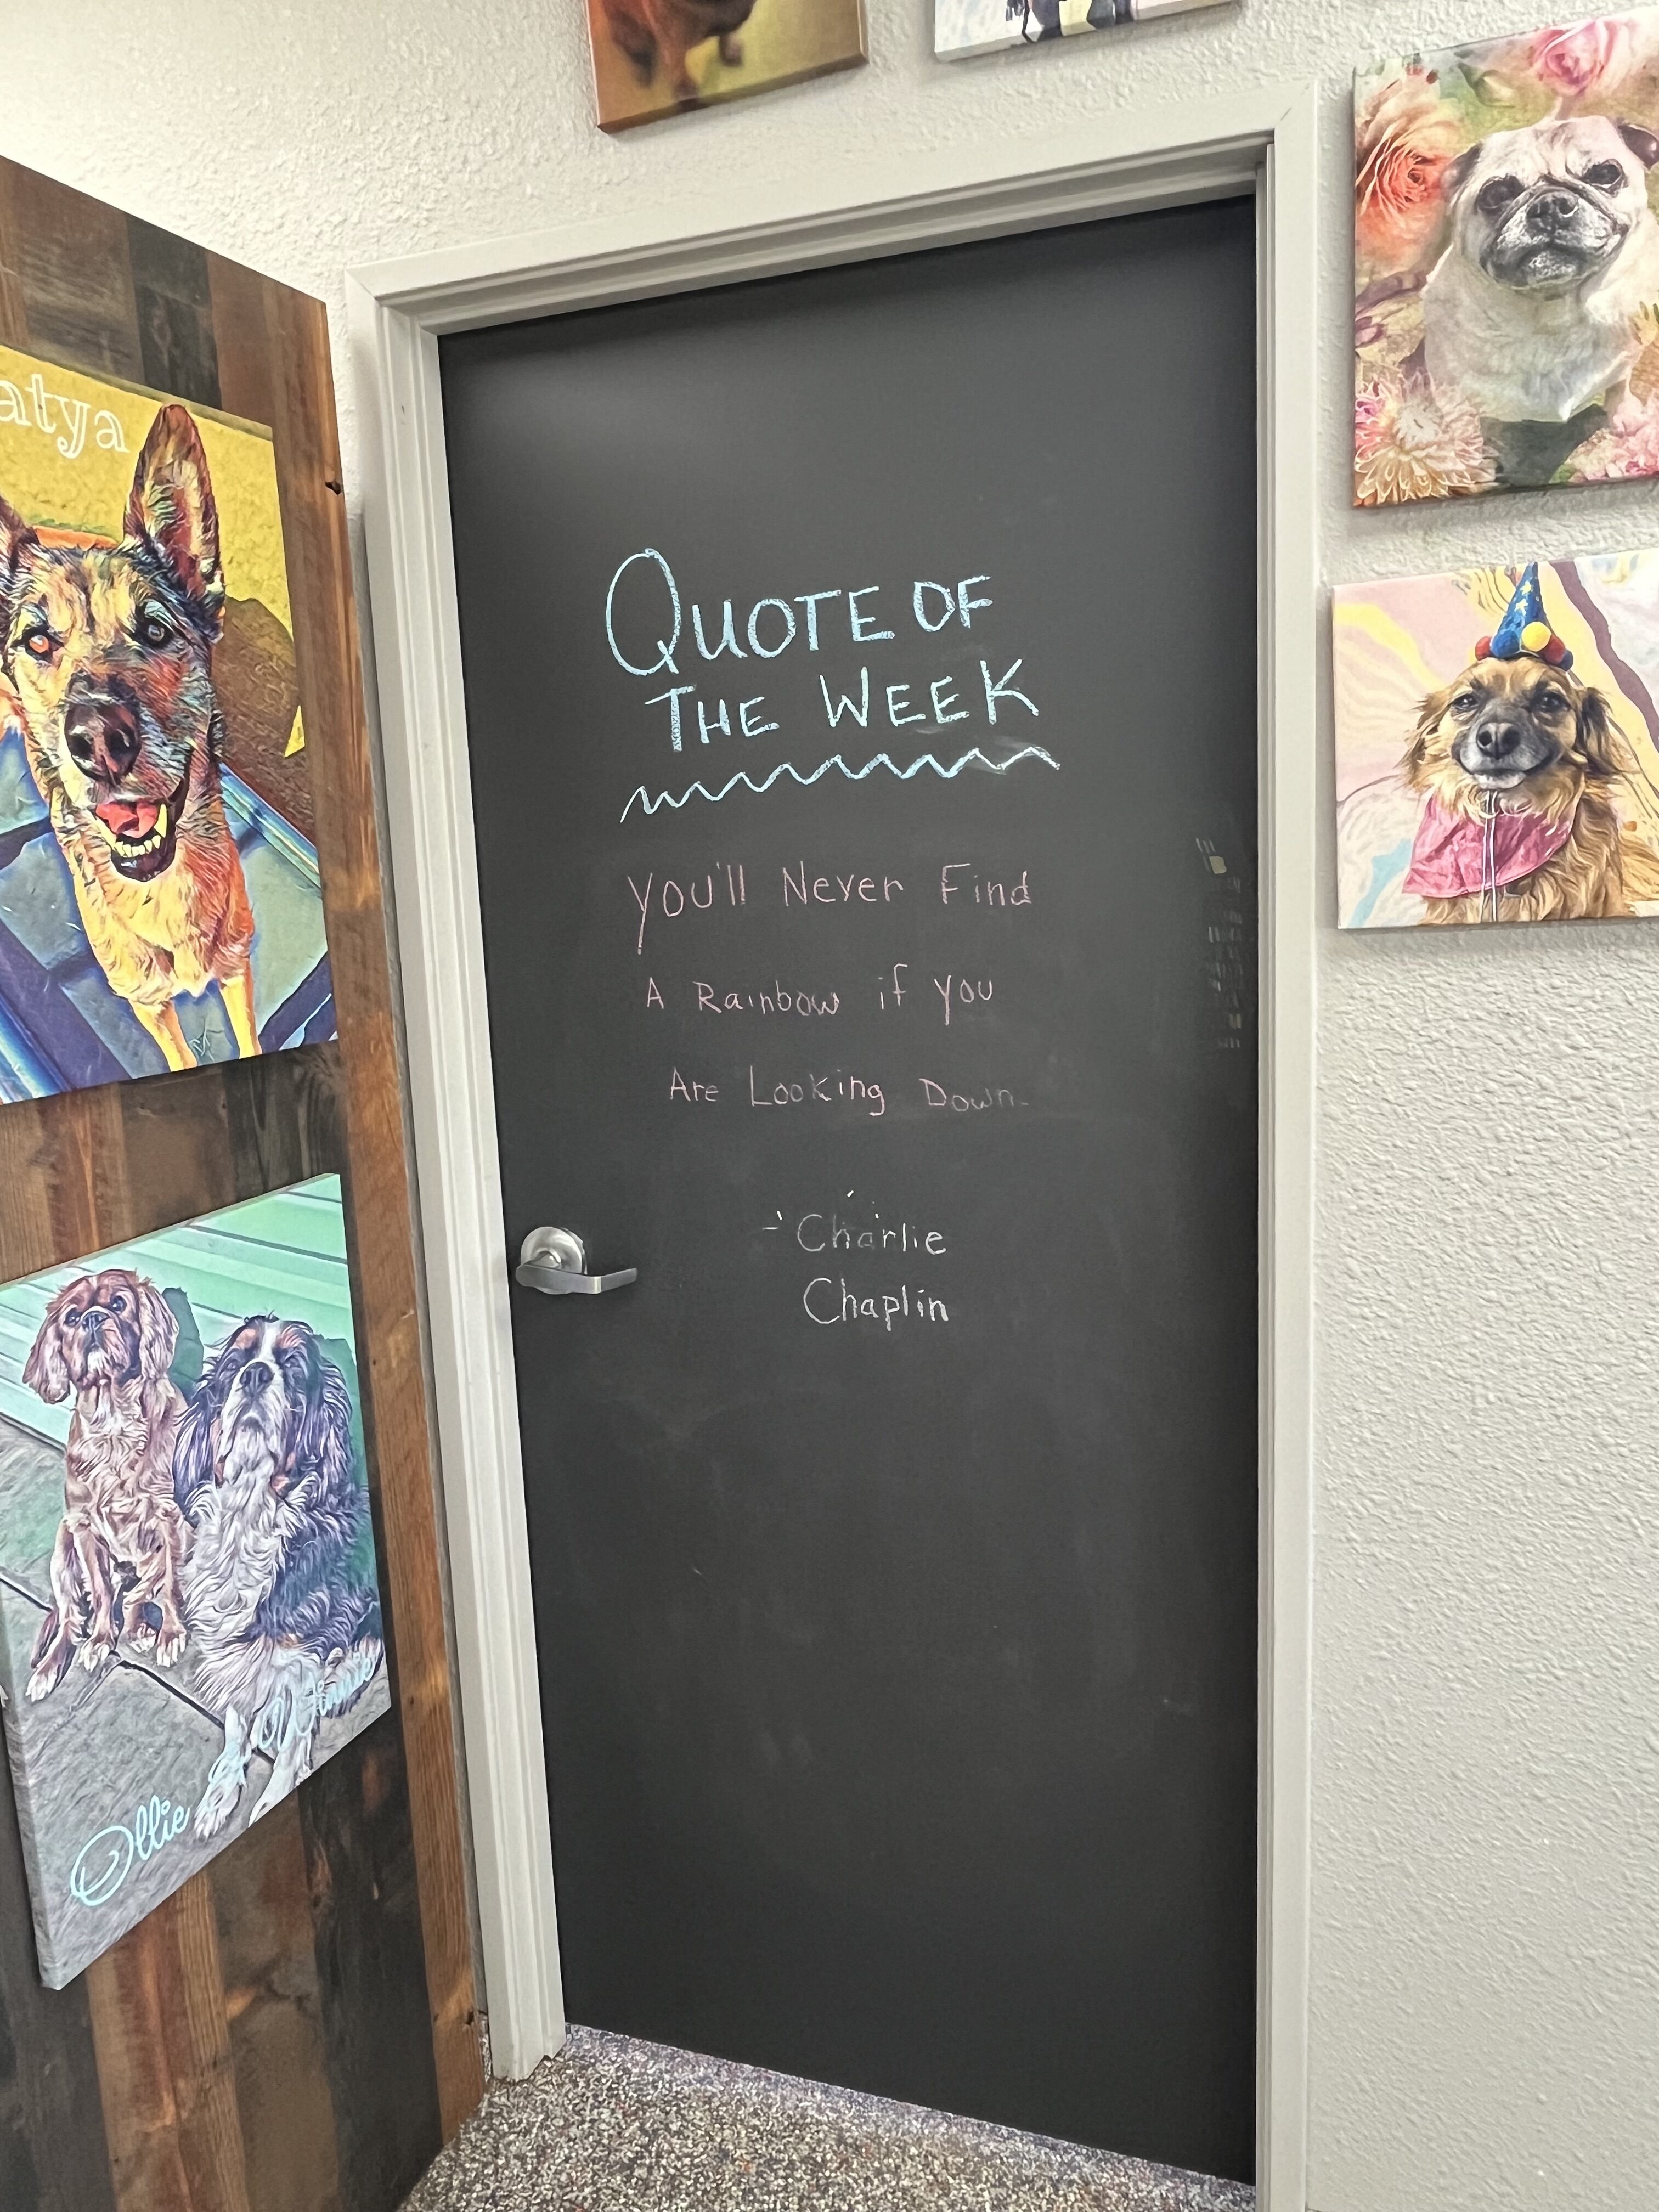 QUOTE OF
THE WEEK
You'll Never Find
A Rainbow if you
Are Looking Down.
- Charlie
Chaplin
atya
Ollie & Winnie